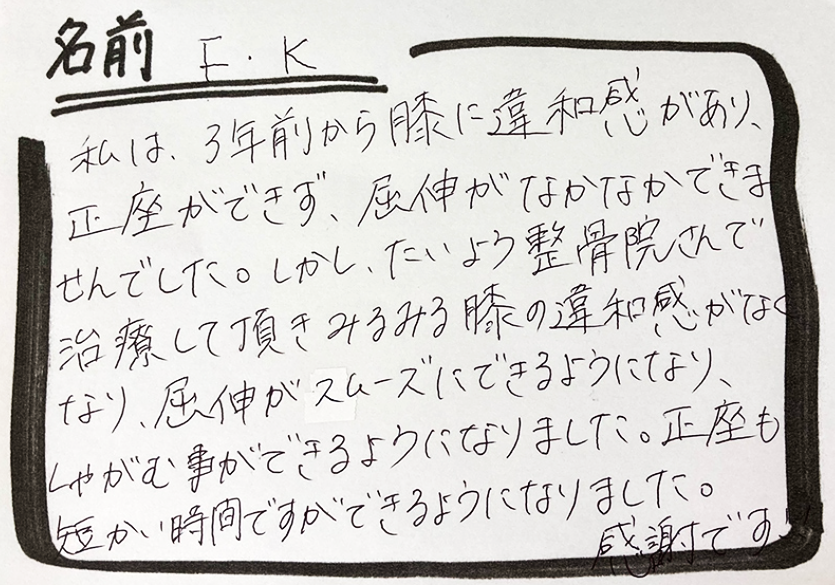 名前 F.K
私は、3年前から膝に違和感があり、
正座ができず、屈伸がなかなかできま
せんでした。しかし、たいよう整骨院さんで
治療して頂きみるみる膝の違和感がなく
なり、屈伸がスムーズにできるようになり、
しゃがむ事ができるようになりました。正座も
短かい時間ですができるようになりました。
感謝です!!